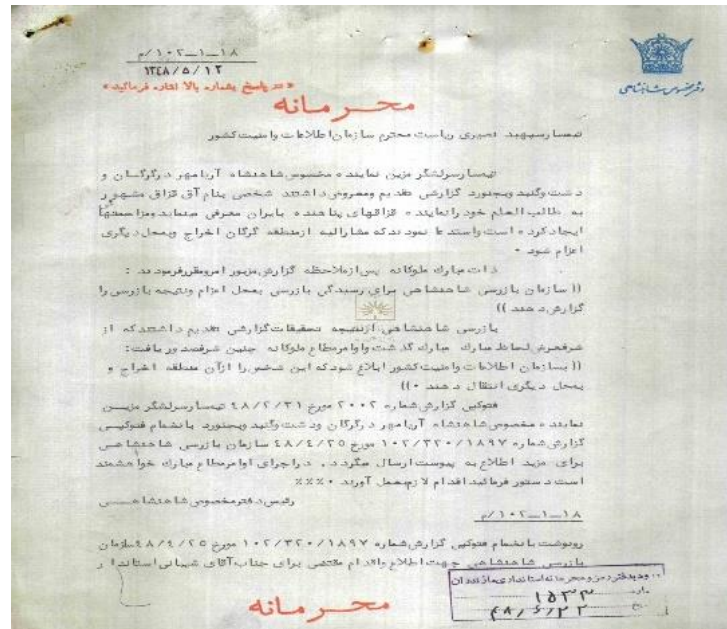 ۱۸-۱-۱۰۲/م
۱۳۴۸/۵/۱۲
«در پاسخ بشماره بالا اشاره فرمائید»
دفتر مخصوص شاهنشاهی
محرمانه
تیمسار سپهبد نصیری ریاست محترم سازمان اطلاعات و امنیت کشور
تیمسار سرلشگر مزین نماینده مخصوص شاهنشاه آریامهر در گرگان و
دشت وگنبد وبجنورد گزارشی تقدیم ومعروض داشتند شخصی بنام آق قزاق مشهور
به طالب العلم خود را نماینده قزاقهای پناهنده بایران معرفی مینماید ومزاحمتهائی
ایجاد کرده است واستدعا نمودند که مشارالیه از منطقه گرگان اخراج وبمحل دیگری
اعزام شود ۰
ذات مبارک ملوکانه پس از ملاحظه گزارش مزبور امر و مقرر فرمودند :
(( سازمان بازرسی شاهنشاهی برای رسیدگی بازرسی بمحل اعزام ونتیجه بازرسی را
گزارش دهند ))
بازرسی شاهنشاهی از نتیجه تحقیقات گزارشی تقدیم داشتند که از
شرفعرض لحاظ مبارک گذشت واوامر مطاع ملوکانه چنین شرفصدور یافت :
(( بسازمان اطلاعات وامنیت کشور ابلاغ شود که این شخص را از آن منطقه اخراج و
بمحل دیگری انتقال دهند ۰ ))
فتوکپی گزارش شماره ۲۰۰۲ مورخ ۴۸/۲/۳۱ تیمسار سرلشگر مزین
نماینده مخصوص شاهنشاه آریامهر در گرگان ودشت وگنبد وبجنورد بانضمام فتوکپی
گزارش شماره ۱۰۲/۳۲۰/۱۸۹۷ مورخ ۴۸/۴/۲۵ سازمان بازرسی شاهنشاهی
برای مزید اطلاع به پیوست ارسال میگردد . در اجرای اوامر مطاع مبارک خواهشمند
است دستور فرمائید اقدام لازم بعمل آورند ۰ ٪٪٪
رئیس دفتر مخصوص شاهنشاهی
۱۸-۱-۱۰۲/م
رونوشت بانضمام فتوکپی گزارش شماره ۱۰۲/۳۲۰/۱۸۹۷ مورخ ۴۸/۴/۲۵ سازمان
بازرسی شاهنشاهی جهت اطلاع واقدام مقتضی برای جناب آقای شیبانی استاندار
ورود بدفتر رمز و محرمانه استانداری مازندران
۱۵۳۳
۴۸/۶/۲۲
محرمانه